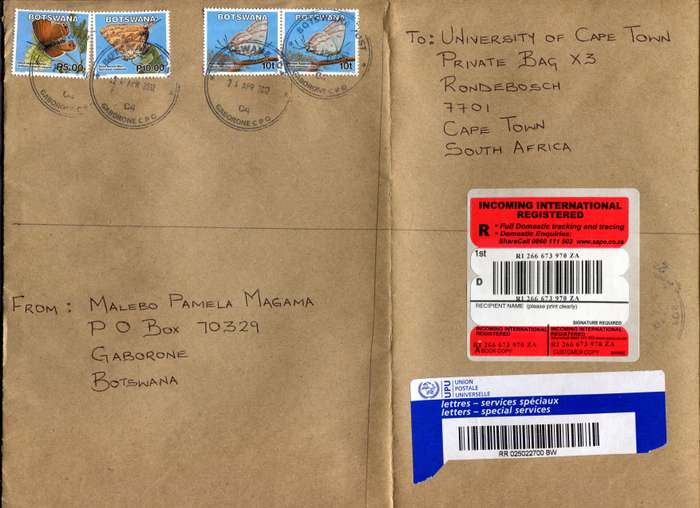 BOTSWANA
P5.00
BOTSWANA
P10.00
BOTSWANA
10t
BOTSWANA
10t
APR 2012
04
GABORONE C.P.O
24 APR 2012
04
GABORONE C.P.O
04
GABORONE C.P.O
To: University of Cape Town
Private Bag X3
Rondebosch
7701
Cape Town
South Africa
From: Malebo Pamela Magama
P O Box 70329
Gaborone
Botswana
INCOMING INTERNATIONAL
REGISTERED
R
• Full Domestic tracking and tracing
• Domestic Enquiries:
ShareCall 0860 111 502 www.sapo.co.za
1st
RI 266 673 970 ZA
D
RI 266 673 970 ZA
RECIPIENT NAME (please print clearly)
SIGNATURE REQUIRED
INCOMING INTERNATIONAL
REGISTERED
RI 266 673 970 ZA
BOOK COPY
INCOMING INTERNATIONAL
REGISTERED
RI 266 673 970 ZA
CUSTOMER COPY
UPU
UNION
POSTALE
UNIVERSELLE
lettres – services spéciaux
letters – special services
RR 025022700 BW